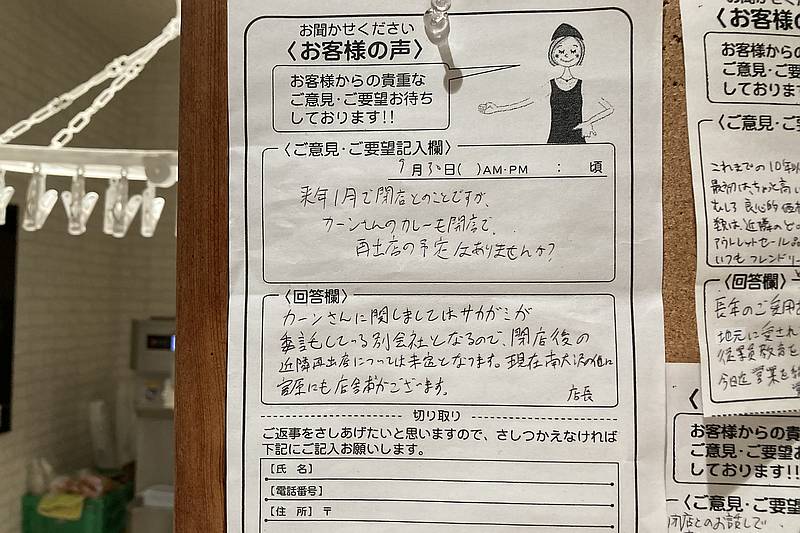 お聞かせください
〈お客様の声〉
お客様からの貴重な
ご意見・ご要望お待ち
しております!!
〈ご意見・ご要望記入欄〉
9月30日( )AM・PM : 頃
来年1月で閉店とのことですが、
カーンさんのカレーも閉店で、
再出店の予定はありませんか?
〈回答欄〉
カーンさんに関しましてはサカガミが
委託している別会社となるので、閉店後の
近隣再出店については未定となります。現在南大沢の他に
にも店舗がございます。
店長
切り取り
ご返事をさしあげたいと思いますので、さしつかえなければ
下記にご記入お願いします。
【氏 名】
【電話番号】
【住 所】 〒
〈お客様の
お客様からの貴
ご意見・ご要望
しております
〈ご意見・ご
これまでの10年
〈回答欄〉
長年のご愛用
地元に愛され
従業員教育を
お客様からの貴
ご意見・ご要望
しております!!
〈ご意見・ご要望
閉店とのお話しで